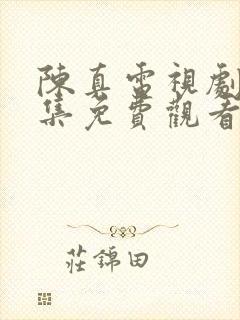 陳真電視劇
集免費觀看
莊錦田